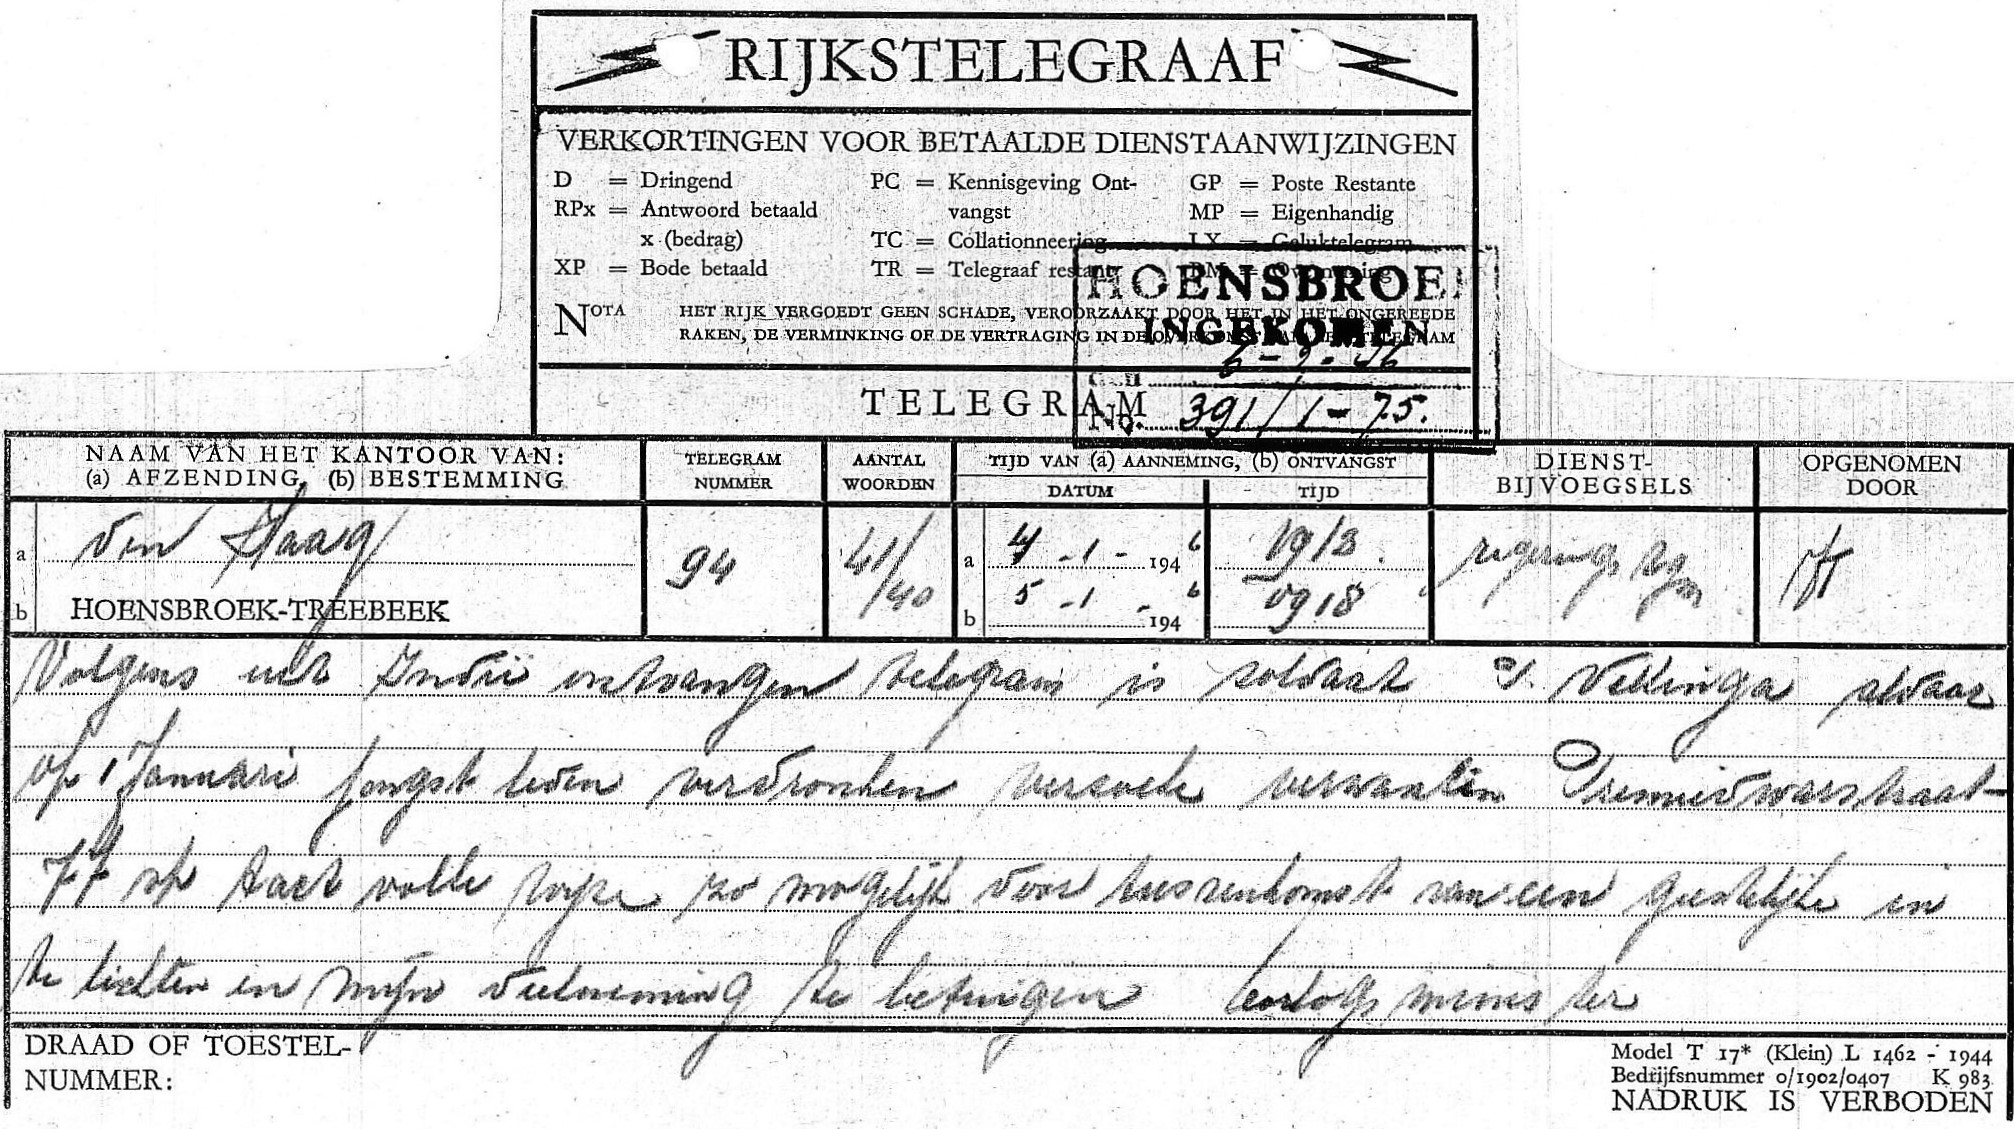 RIJKSTELEGRAAF
VERKORTINGEN VOOR BETAALDE DIENSTAANWIJZINGEN
D = Dringend PC = Kennisgeving Ont- GP = Poste Restante
RPx = Antwoord betaald vangst MP = Eigenhandig
x (bedrag) TC = Collationneering LX = Geluktelegram
XP = Bode betaald TR = Telegraaf restant
HOENSBROE
NOTA HET RIJK VERGOEDT GEEN SCHADE, VEROORZAAKT DOOR HET IN HET ONGEREEDE
RAKEN, DE VERMINKING OF DE VERTRAGING IN DE
INGEKOMEN
TELEGRAM
No. 391/1-75.
NAAM VAN HET KANTOOR VAN: TELEGRAM AANTAL TIJD VAN (a) AANNEMING, (b) ONTVANGST DIENST- OPGENOMEN
(a) AFZENDING, (b) BESTEMMING NUMMER WOORDEN DATUM TIJD BIJVOEGSELS DOOR
a den Haag 94 41/40 a 4-1-1946 1913 regerings
b HOENSBROEK-TREEBEEK b 5-1-1946 0918
Volgens uit Indië ontvangen telegram is soldaat Vellinga aldaar
op 1 Januari jongst leden verdronken verzoeke verwanten
77 op tact volle wijze zo mogelijk door tussenkomst van een geestelijke in
te lichten en mijn deelneming te betuigen oorlogs minister
DRAAD OF TOESTEL-
NUMMER:
Model T 17* (Klein) L 1462 - 1944
Bedrijfsnummer 0/1902/0407 K 983
NADRUK IS VERBODEN